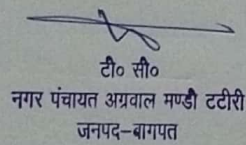 टी० सी०
नगर पंचायत अग्रवाल मण्डी टटीरी
जनपद–बागपत